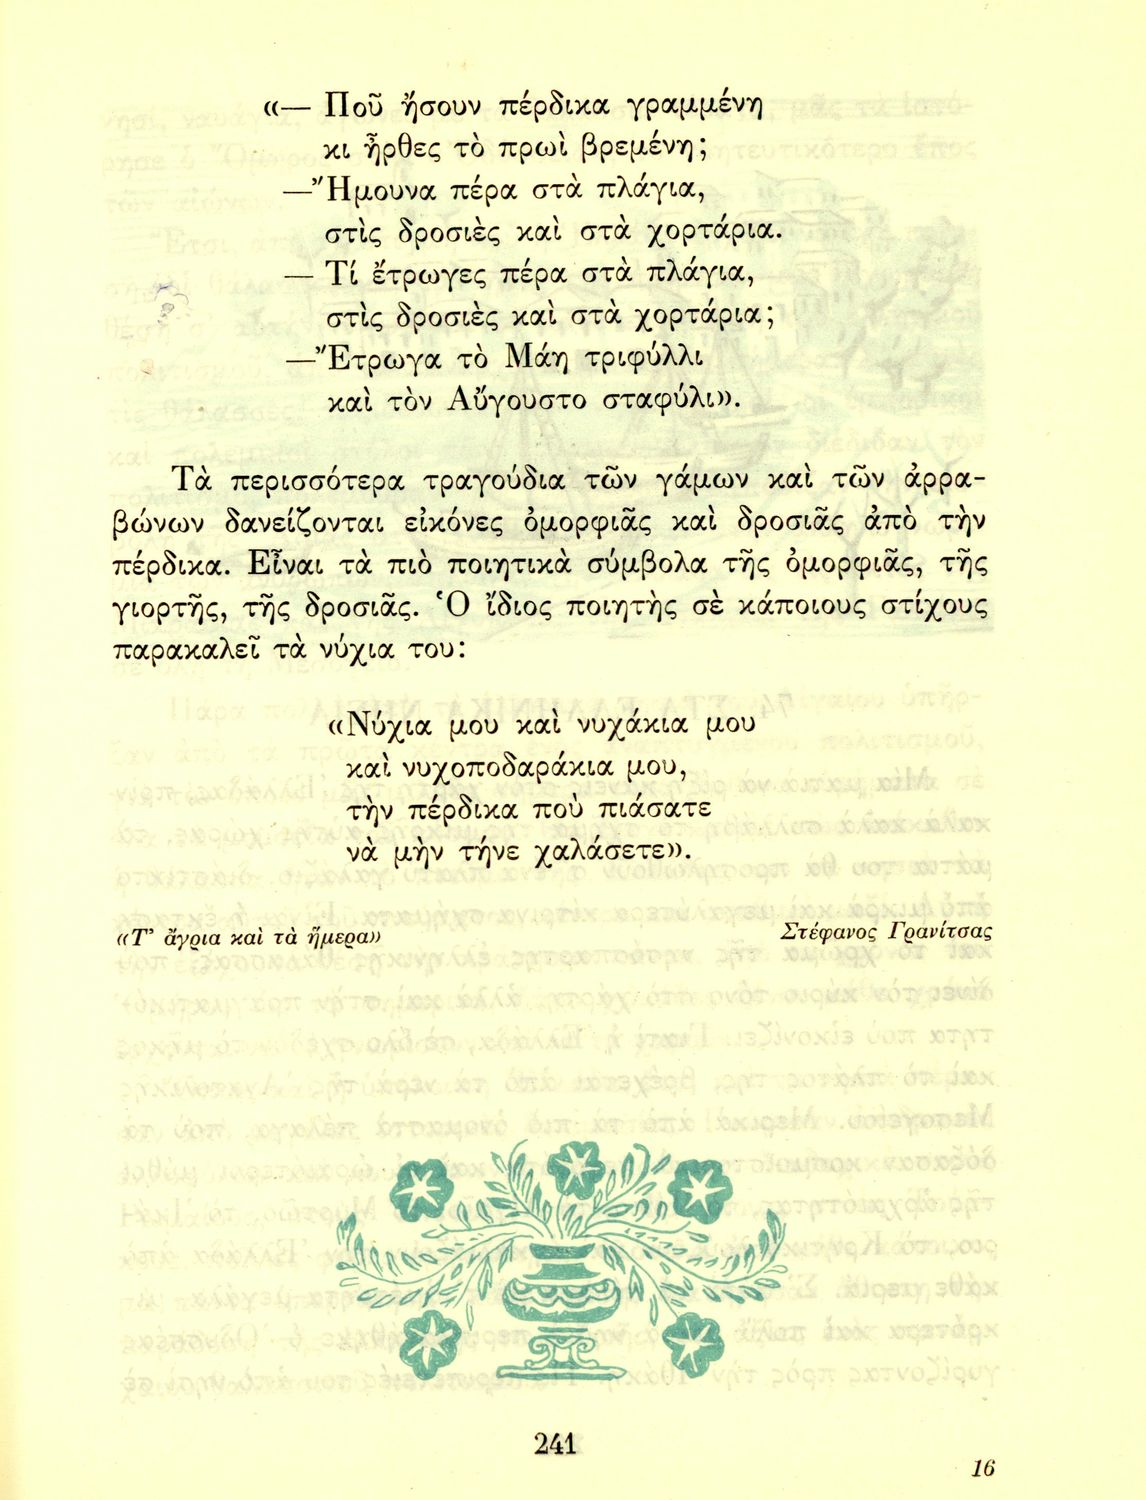 «— Ποῦ ἤσουν πέρδικα γραμμένη
κι ἦρθες τὸ πρωὶ βρεμένη;
—Ἤμουνα πέρα στὰ πλάγια,
στὶς δροσιὲς καὶ στὰ χορτάρια.
— Τί ἔτρωγες πέρα στὰ πλάγια,
στὶς δροσιὲς καὶ στὰ χορτάρια;
—Ἔτρωγα τὸ Μάη τριφύλλι
καὶ τὸν Αὔγουστο σταφύλι».
Τὰ περισσότερα τραγούδια τῶν γάμων καὶ τῶν ἀρρα-
βώνων δανείζονται εἰκόνες ὀμορφιᾶς καὶ δροσιᾶς ἀπὸ τὴν
πέρδικα. Εἶναι τὰ πιὸ ποιητικὰ σύμβολα τῆς ὀμορφιᾶς, τῆς
γιορτῆς, τῆς δροσιᾶς. Ὁ ἴδιος ποιητὴς σὲ κάποιους στίχους
παρακαλεῖ τὰ νύχια του:
«Νύχια μου καὶ νυχάκια μου
καὶ νυχοποδαράκια μου,
τὴν πέρδικα ποὺ πιάσατε
νὰ μὴν τήνε χαλάσετε».
«Τ' ἄγρια καὶ τὰ ἥμερα» Στέφανος Γρανίτσας
241
16